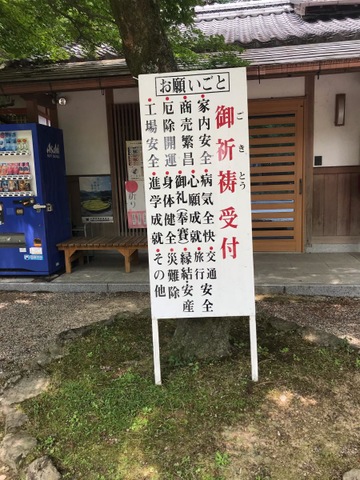 お願いごと
御祈祷受付
ごきとう
家内安全
病気全快
交通安全
商売繁昌
心願成就
旅行安全
厄除開運
御礼奉賽
縁結安産
工場安全
身体健全
災難除
進学成就
その他
Asahi
祈り